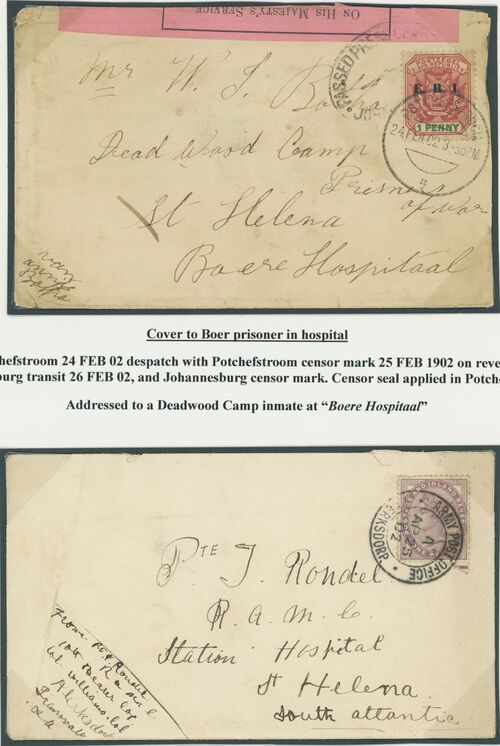 On His Majesty's Service
PASSED PRE
E. R. I.
1 PENNY
24 FEB 02 3-30 PM
Mr W. J. Botha
Dead Wood Camp
Prisner of War
St Helena
Boere Hospitaal
van
Botha
Cover to Boer prisoner in hospital
hefstroom 24 FEB 02 despatch with Potchefstroom censor mark 25 FEB 1902 on reve
burg transit 26 FEB 02, and Johannesburg censor mark. Censor seal applied in Potche
Addressed to a Deadwood Camp inmate at “Boere Hospitaal”
ARMY POST OFFICE
A
AP 25
02
ERKSDORP
Pte J. Rondel
R. A. M. C.
Station Hospital
St Helena
South Atlantic
From Pte Rondel
10th Bearer Coy
Col. Williams. Col
Klerksdorp
Transvaal
S.A